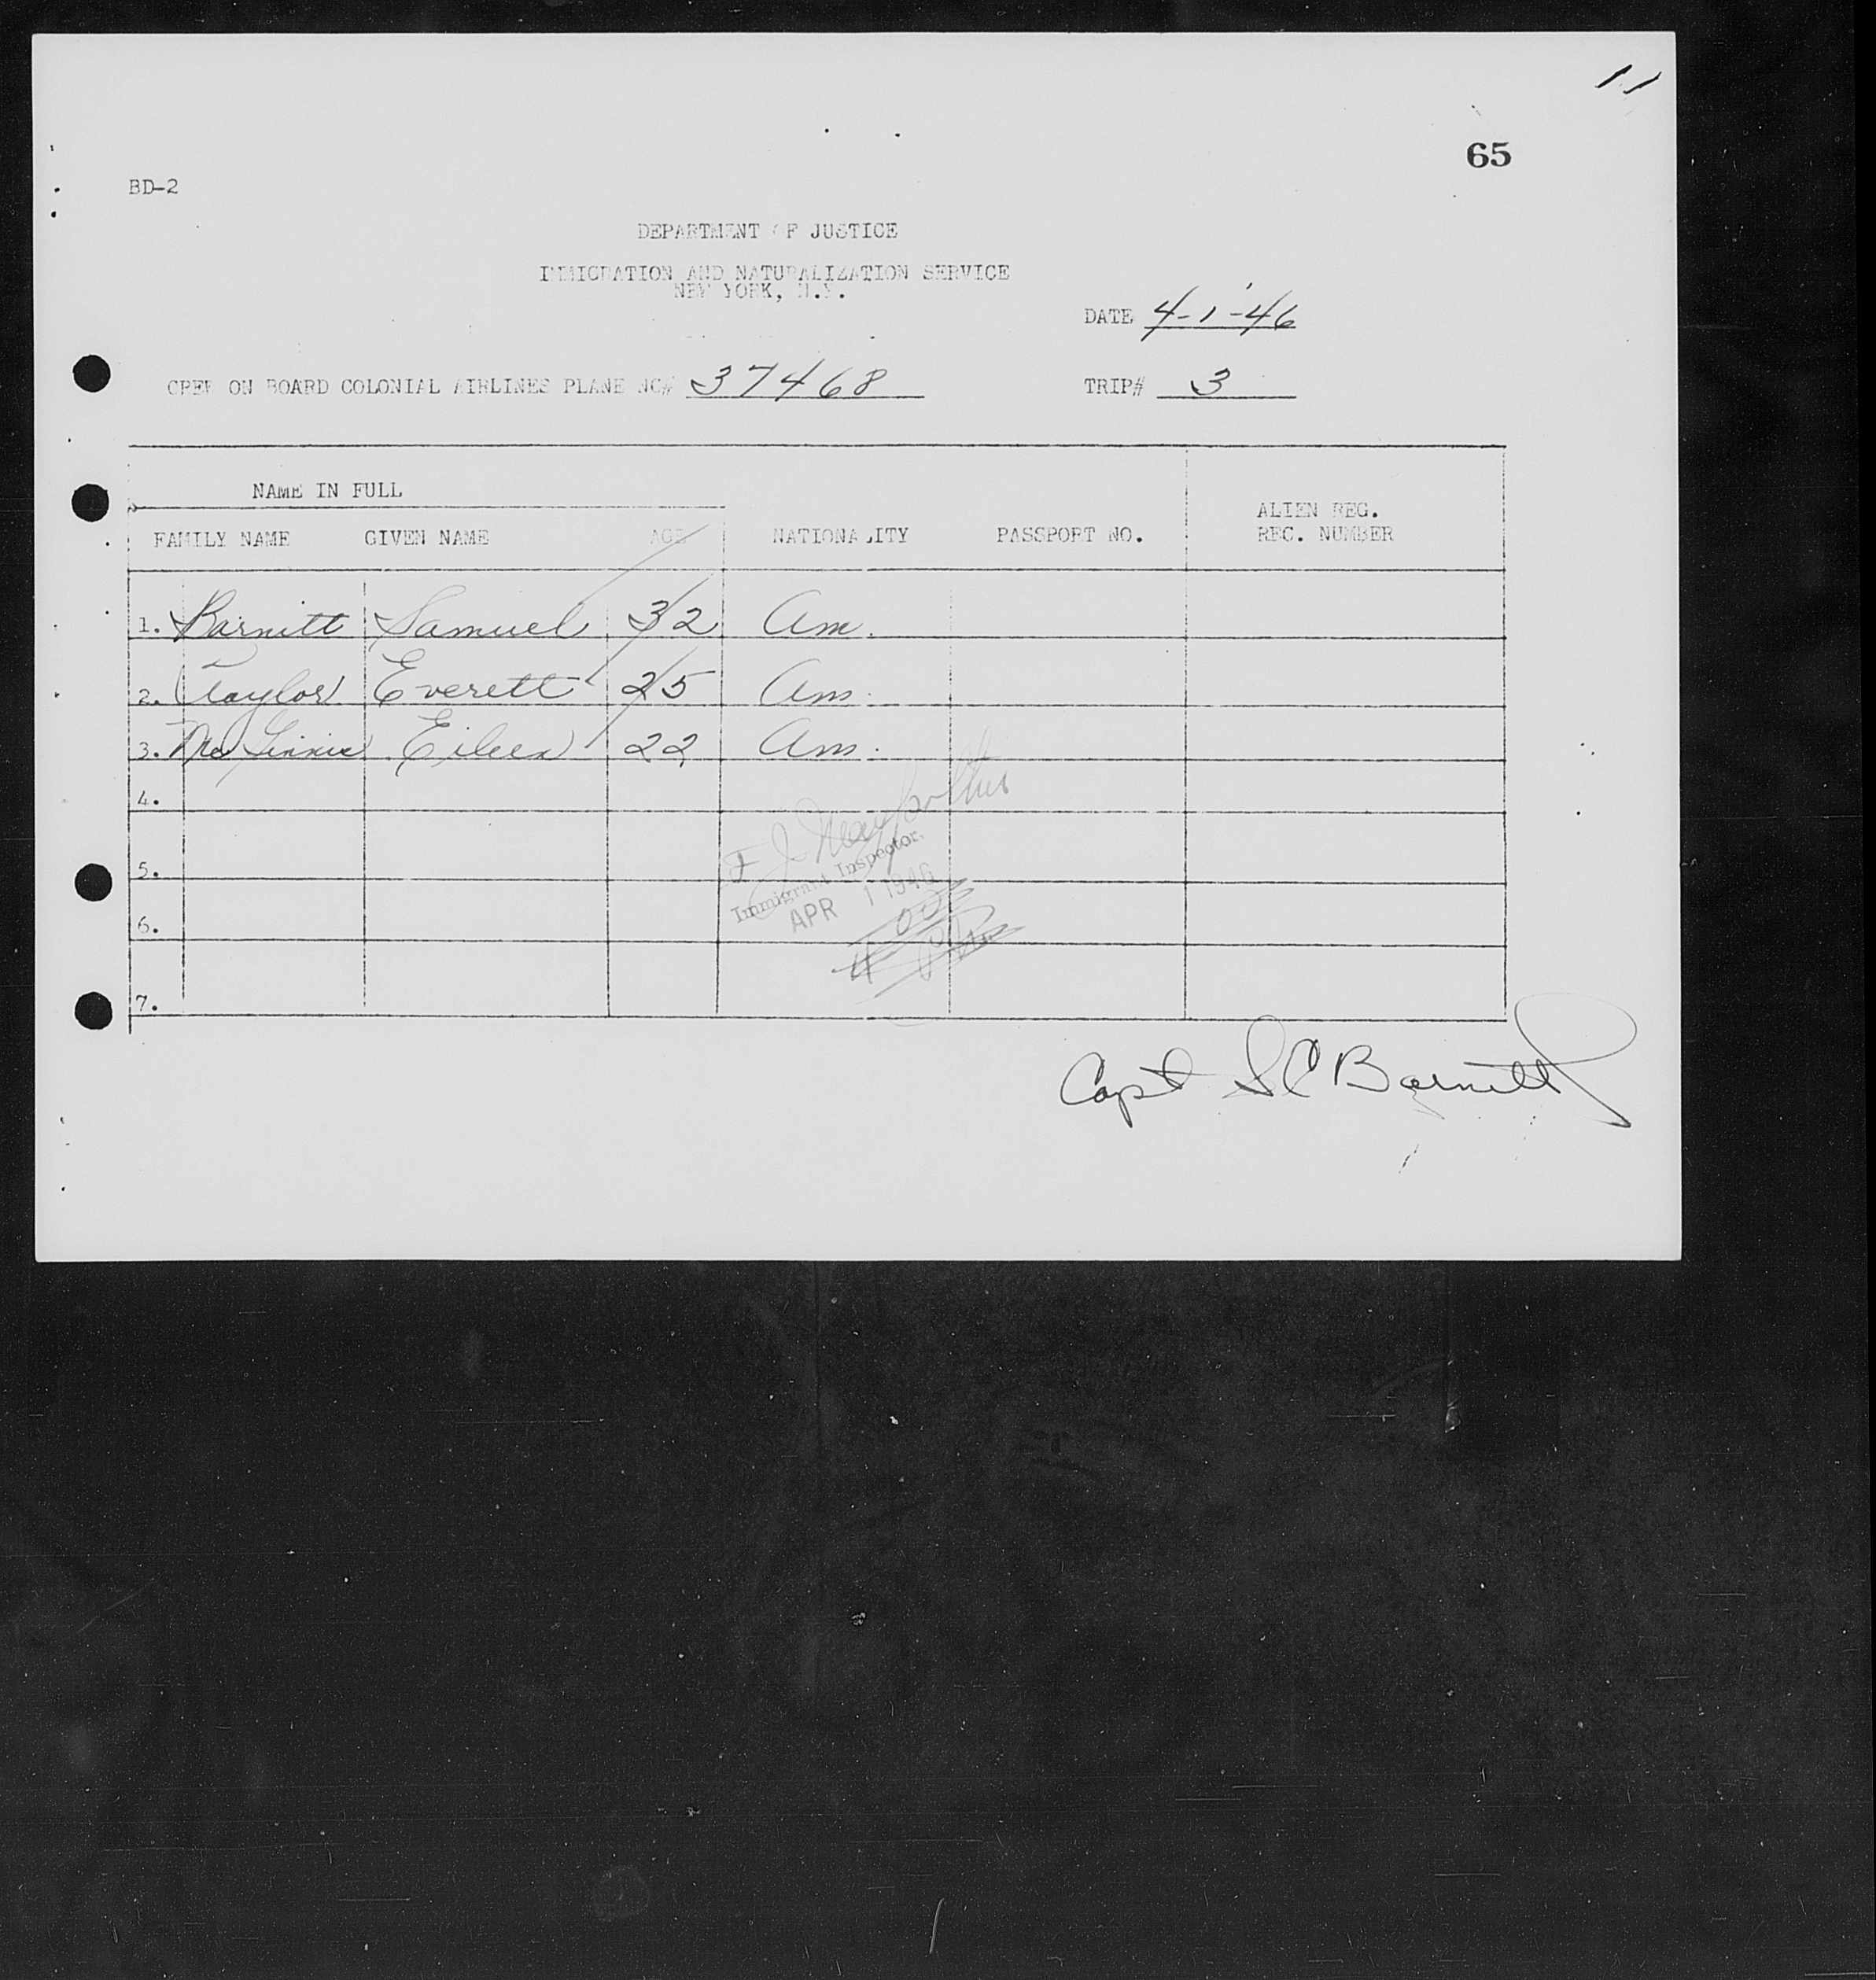 11
65
BD-2
DEPARTMENT OF JUSTICE
IMMIGRATION AND NATURALIZATION SERVICE
NEW YORK, N.Y.
DATE 4-1-46
CREW ON BOARD COLONIAL AIRLINES PLANE NC# 37468 TRIP# 3
NAME IN FULL
FAMILY NAME GIVEN NAME AGE NATIONALITY PASSPORT NO. ALIEN REG. REC. NUMBER
1. Barnitt Samuel 32 Am.
2. Taylor Everett 25 Am.
3. Eileen 22 Am.
4.
5.
6.
7.
Immigrant Inspector.
APR 1 1946
Capt S C Barnitt